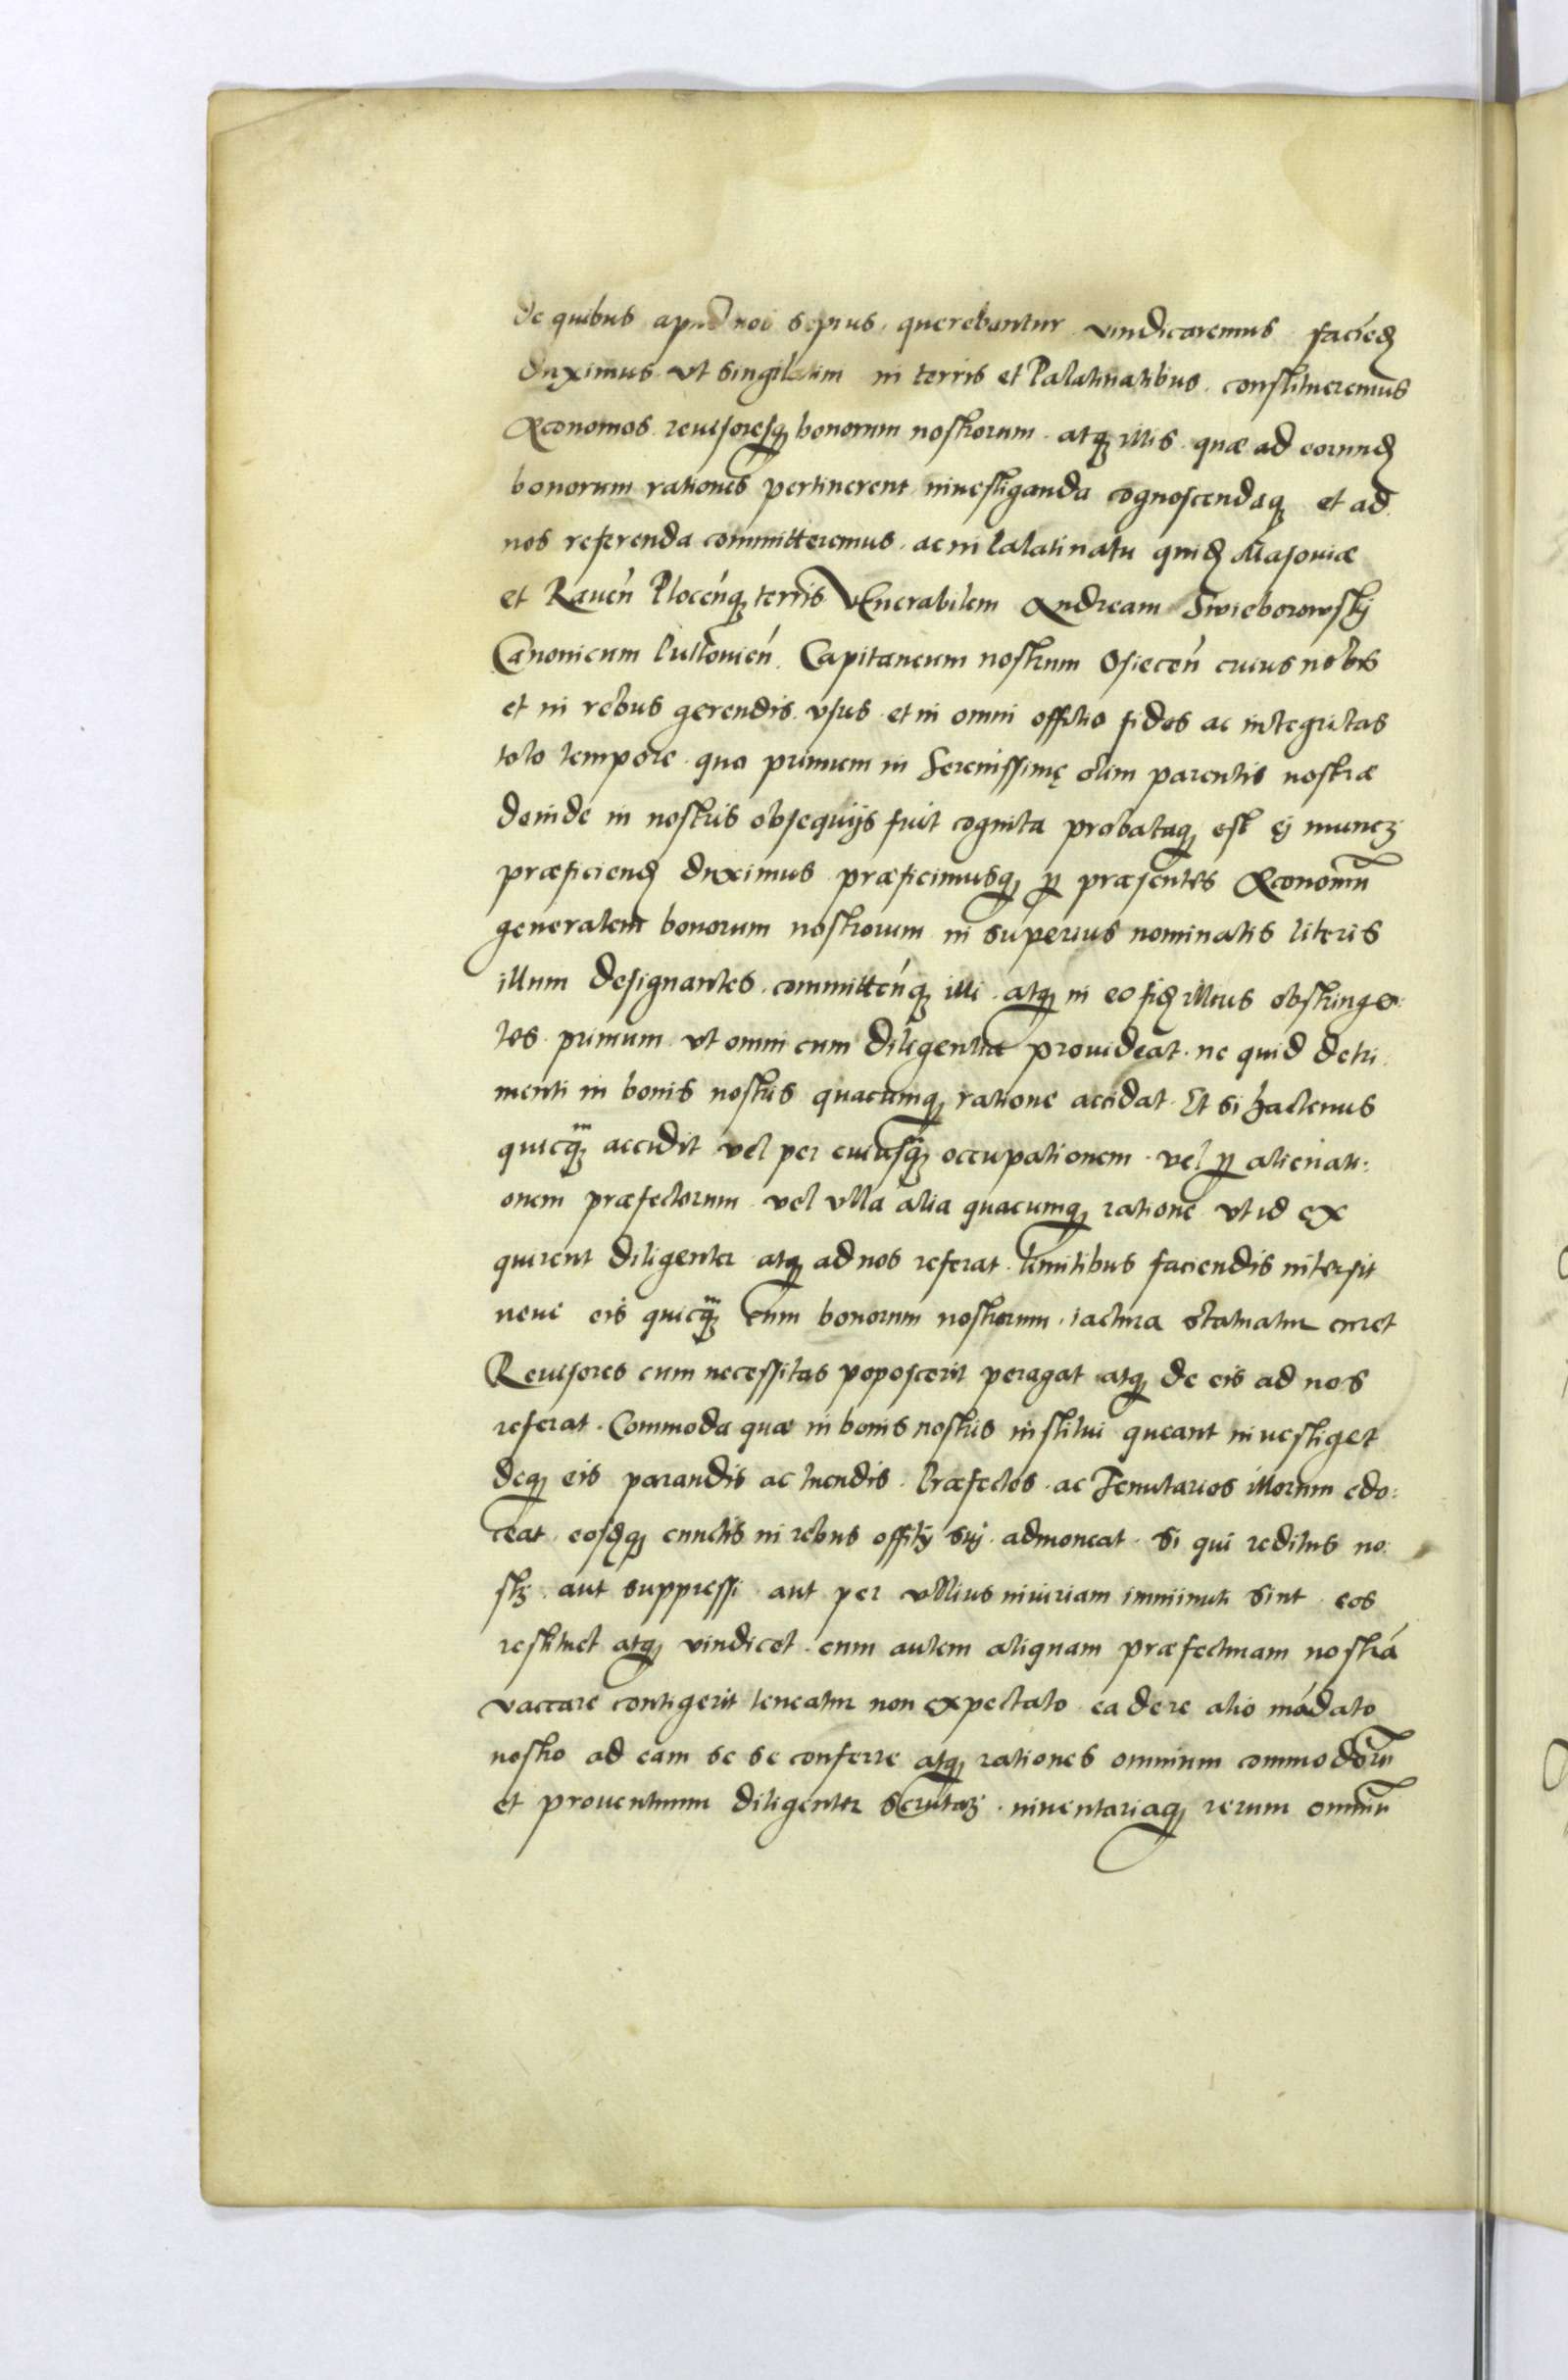 de quibus apud nos sepius querebantur vindicaremus facieꝺ
duximus vt singilatim in terris et Palatinatibus constitueremus
Œconomos reuisoresqꝫ bonorum nostrorum atqꝫ illis quæ ad eorunꝺ
bonorum rationes pertinerent inuestiganda cognoscendaqꝫ et ad
nos referenda committeremus ac in Palatinatu quiꝺ Masouiæ
et Rauen̄ Plocen̄qꝫ terris Venerabilem Andream Swieborowskj
Canonicum Pultouien̄ Capitaneum nostrum Osiecen̄ cuius nobis
et in rebus gerendis vsus et in omni offitio fides ac integritas
toto tempore quo primum in Serenissimę olim parentis nostræ
deinde in nostris obsequijs fuit cognita probataqꝫ est ej munerꝫ
præficienꝺ duximus præficimusqꝫ ꝑ præsentes Œconomū
generalem bonorum nostrorum in superius nominatis literis
illum designantes committen̄qꝫ illi atqꝫ in eo fiꝺ illius obstringē:
tes primum vt omni cum diligentia prouideat ne quid detri:
menti in bonis nostris quacumqꝫ ratione accidat Et si hactenus
quicqꝫ accidit vel per cuiusqꝫ occupationem vel ꝑ alienati:
onem præfectorum vel vlla alia quacumqꝫ ratione vt id ex
quirent diligenter atqꝫ ad nos referat limitibus faciendis intersit
neue eis quicqꝫ cum bonorum nostrorum iactura statuatur curet
Reuisores cum necessitas poposcerit peragat atqꝫ de eis ad nos
referat Commoda quæ in bonis nostris institui queant inuestiget
deqꝫ eis parandis ac tuendis Præfectos ac Tenutarios illorum edo:
ceat eosꝺqꝫ cunctis in rebus offitij suj admoneat Si qui reditus no:
strꝫ aut suppressi aut per vllius iniuriam imminuti sint eos
restituet atqꝫ vindicet cum autem aliquam præfecturam nostrā
vaccare contigerit teneatur non expectato ea de re alio mādato
nostro ad eam se se conferre atqꝫ rationes omnium commodorū
et prouentuum diligenter scrutarj inuentariaqꝫ rerum omniū